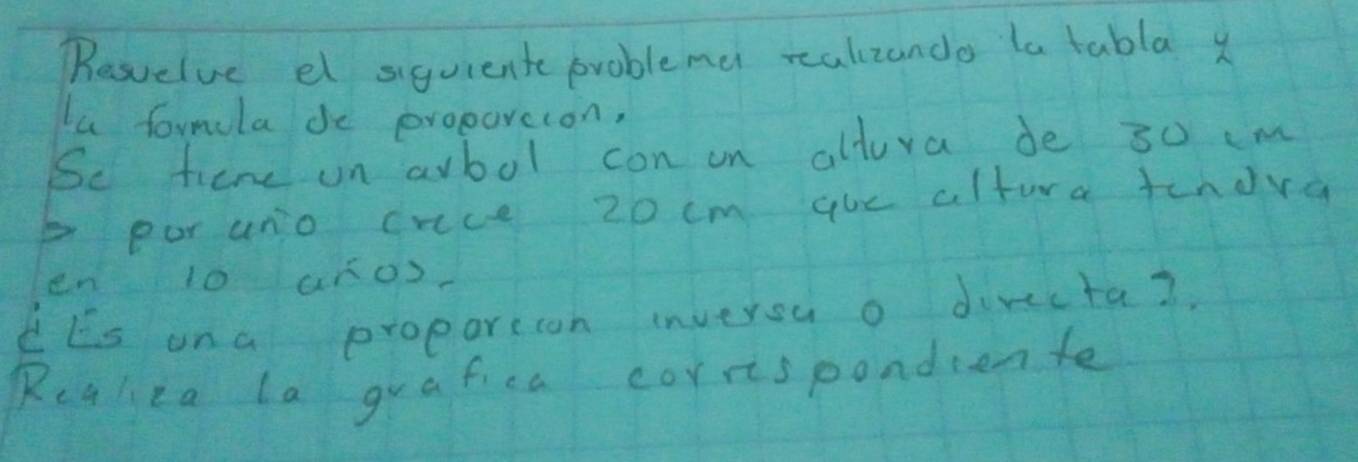 Resuelve el siguiente problema realizando la tabla y
la formula de proporcion.
Se tiene un arbol con un altura de 30 cm
por año crece 20 cm que altura tendra
en 10 años.
¿Es una proporcion inversa o directa?.
Realiza la grafica correspondiente